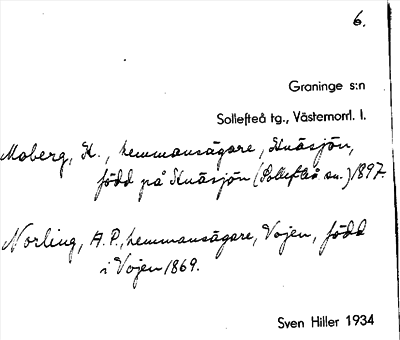 6.
Graninge s:n
Sollefteå tg., Västernorrl. l.
Moberg, K., hemmansägare, Knäsjön,
född på Knäsjön (Sollefteå sn.) 1897.
Norling, A.P., hemmansägare, Vojen, född
i Vojen 1869.
Sven Hiller 1934